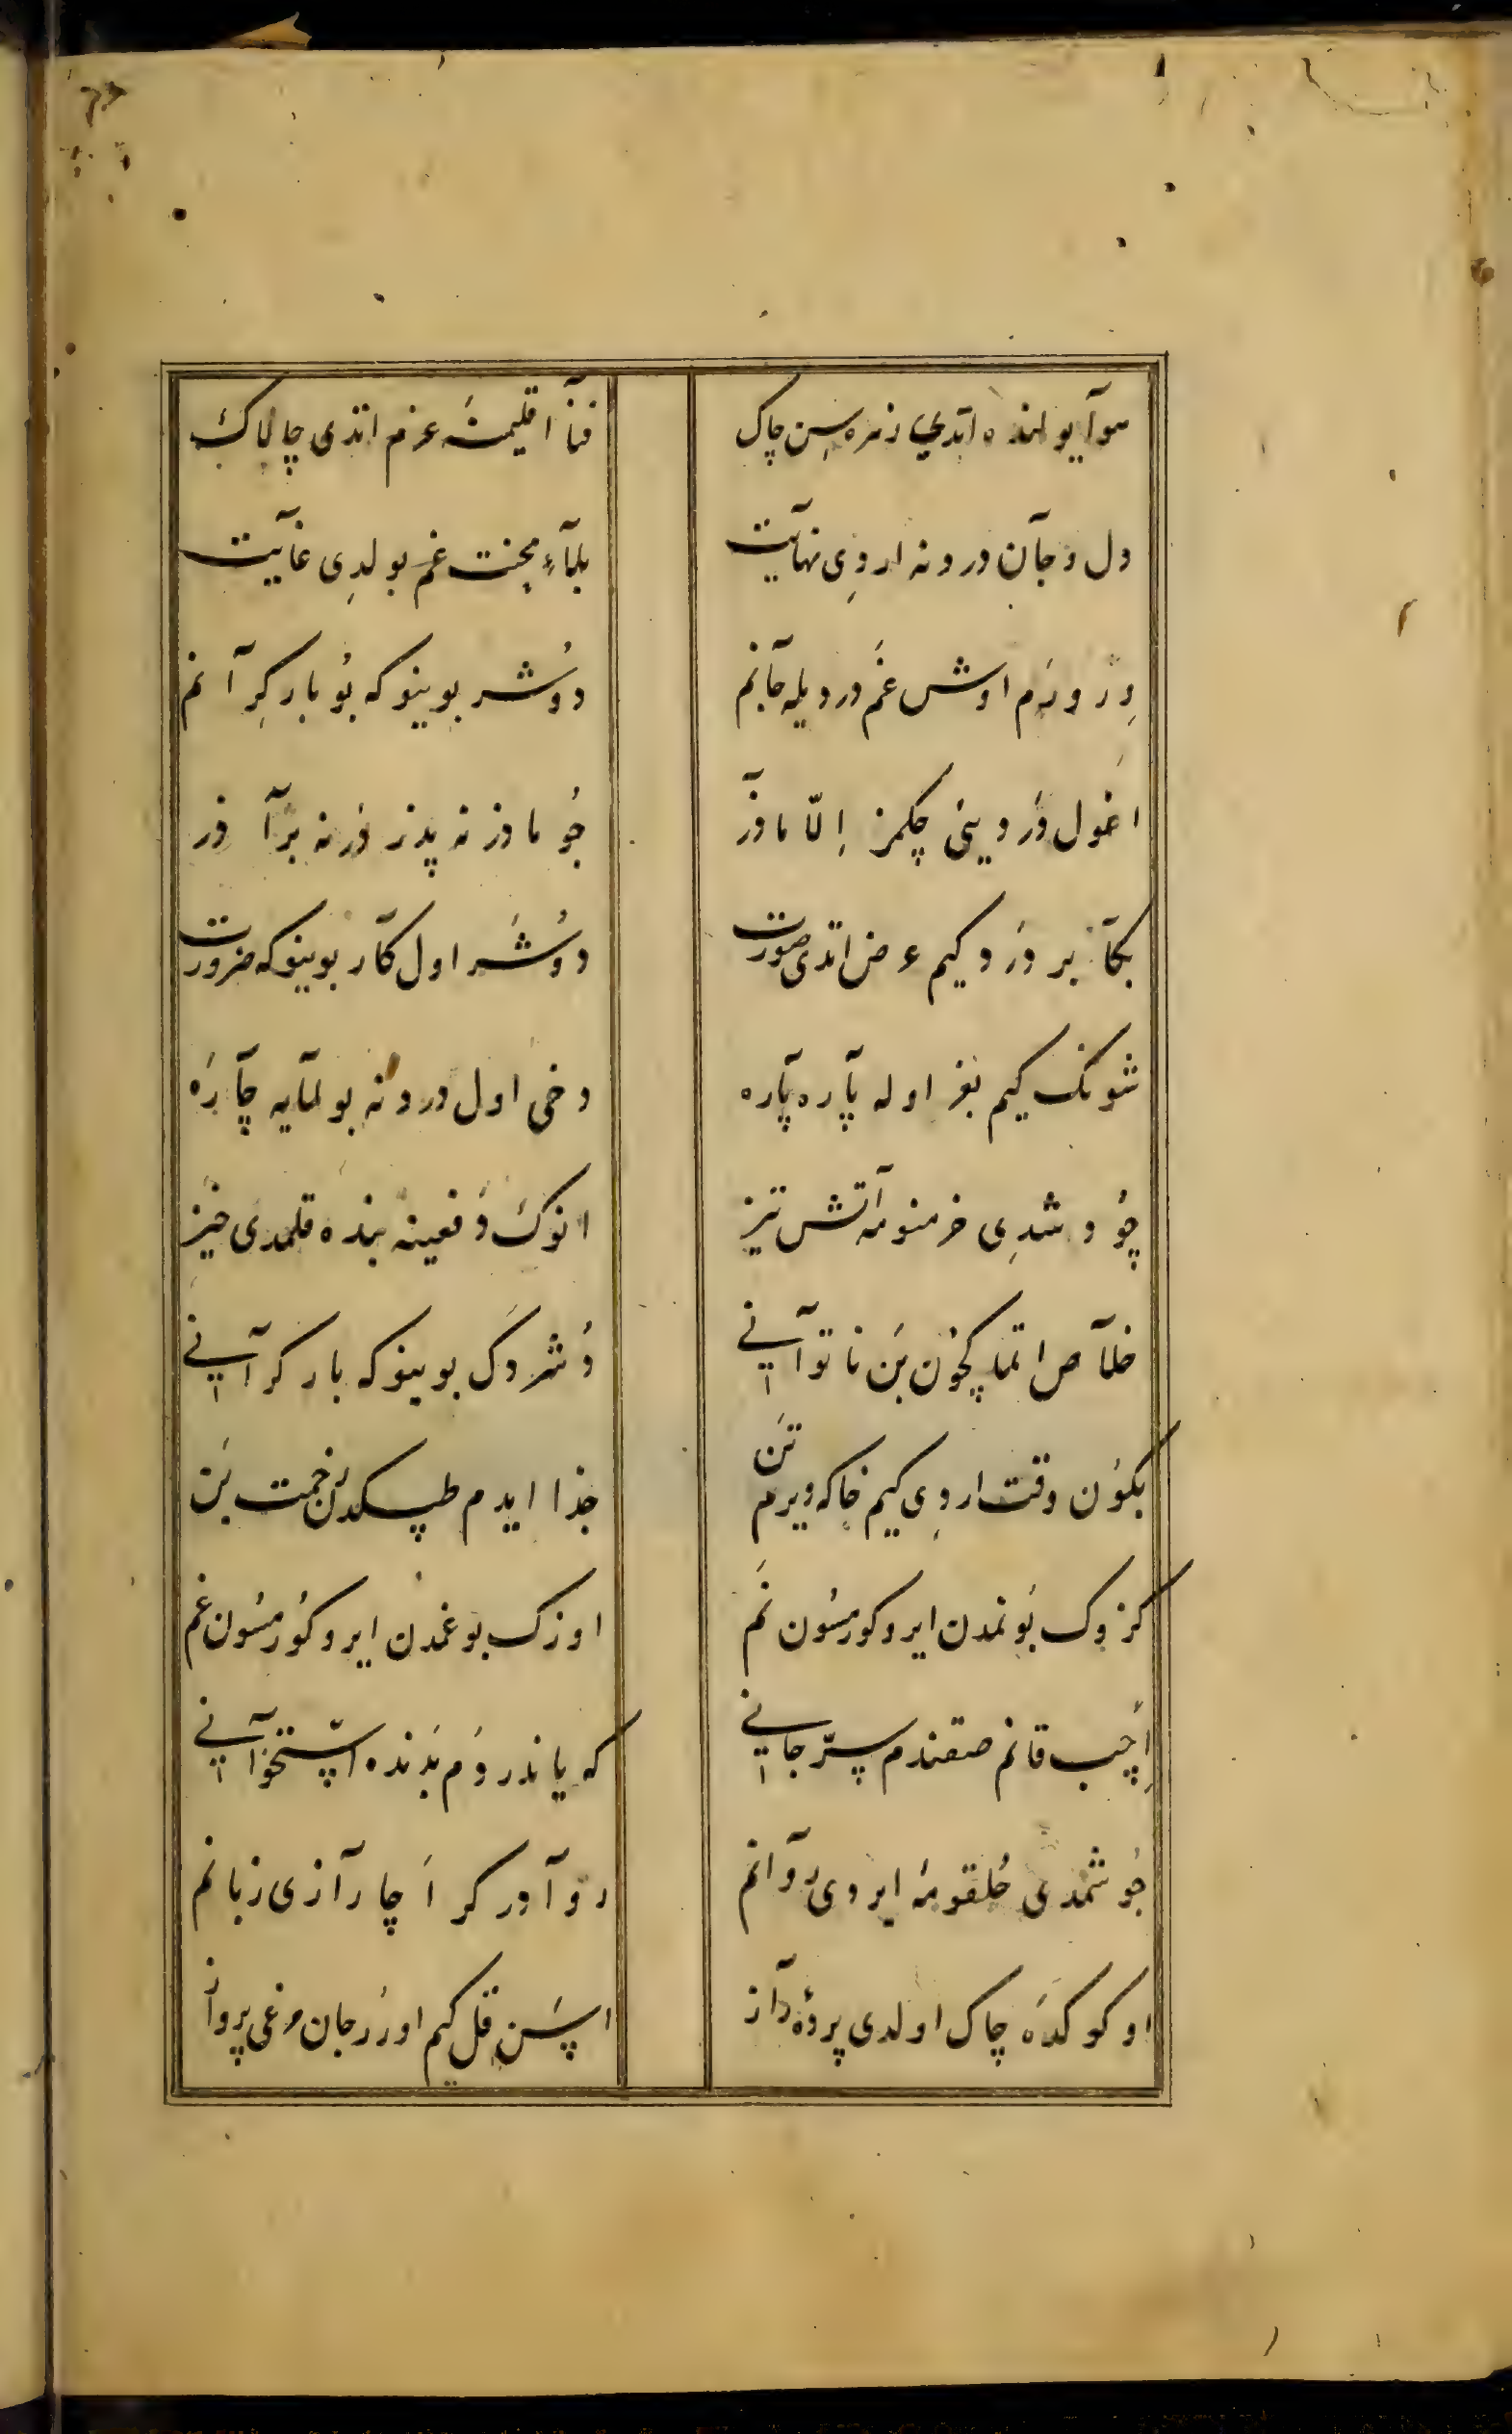 هوآ یولنده اتدی زهره سن چاک فنآ اقلیمنه عزم اتدی چالاک
دل و جآن دردونه اردی نهآیت بلآء محنت غم بولدی غآیت
درونم اوش غم دردیله جآنم دوشر بوینو که بو بار کرآنم
اغول دردینی چکمز الّا مادر چو مادر نه پدر در نه برآدر
بکآ بر درد کیم عرض اتدی صورت دوشر اول کآر بوینو که ضرورت
شونک کیم بغر اوله پآره پآره دخی اول دردونه بولمآیه چآره
چو دشدی خرمنومه آتش تیز انوک دفعینه بنده قلمدی خیز
خلآص اتماکچون بن ناتوآنی دشردک بوینوکه بار کرآنی
بکون وقت اردی کیم خاکه ویرم تن جدا ایدم طپوکدن زحمت بن
کزوک بو نمدن ایرو کورمسون نم اوزک بو غمدن ایرو کورمسون غم
اچب قانم صقندم سرّ جانی که یاندردم بدنده استخوآنی
چو شمدی حلقومه ایردی روآنم روآ در کر اچار رآزی زبانم
اوکوکده چاک اولدی پرده رآز اسن قل کیم اورر جان مرغی پروآز